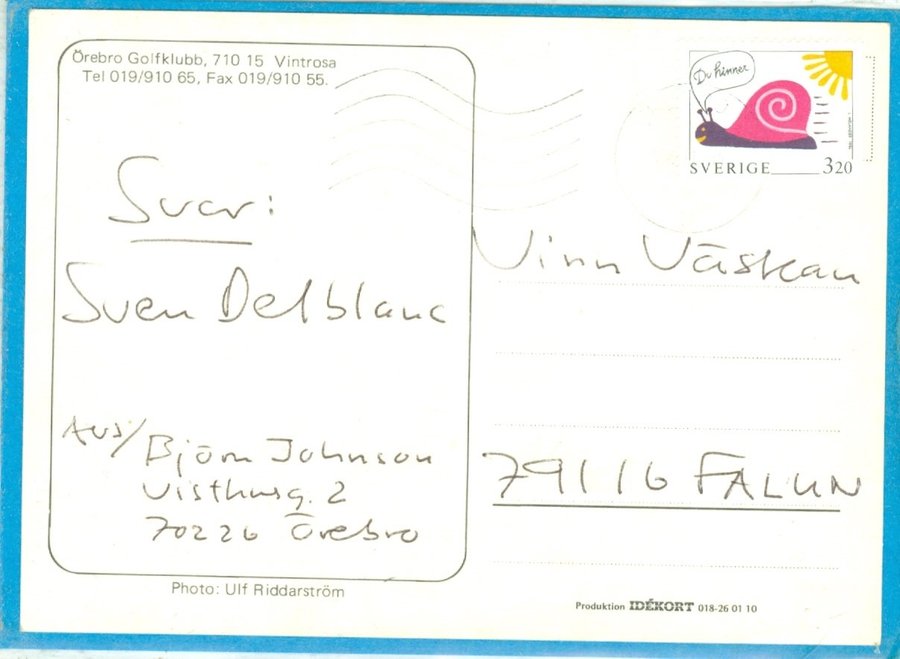 Örebro Golfklubb, 710 15 Vintrosa
Tel 019/910 65, Fax 019/910 55.
Svar:
Sven Delblanc
Avs/ Björn Johnson
Visthusg. 2
70226 Örebro
Photo: Ulf Riddarström
Du hinner
SVERIGE 320
Vinn Väskan
79116 FALUN
Produktion IDÉKORT 018-26 01 10